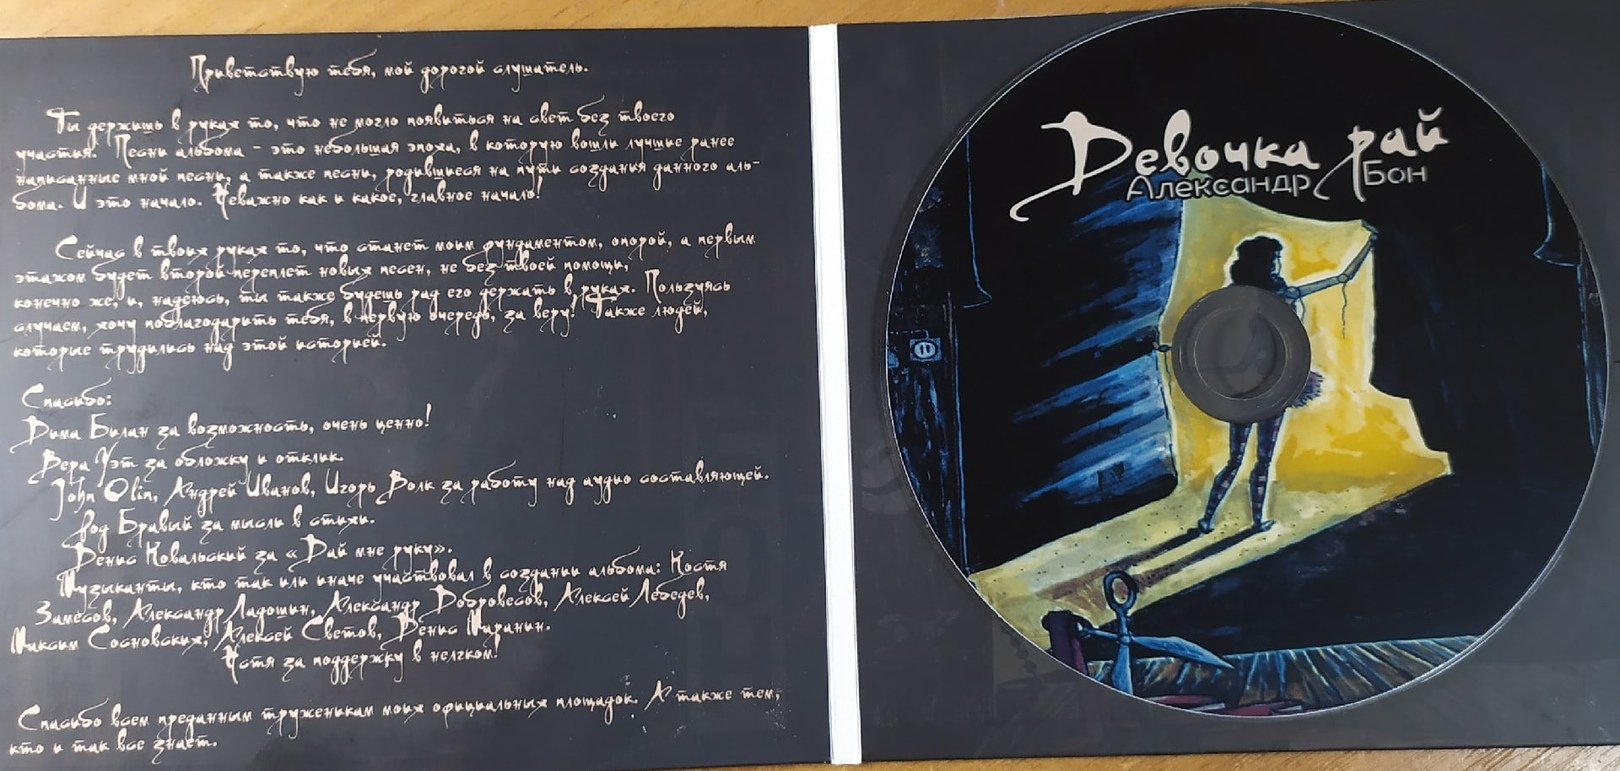 Приветствую тебя, мой дорогой слушатель.
Ты держишь в руках то, что не могло появиться на свет без твоего
участия. Песни альбома - это небольшая эпоха, в которую вошли лучшие ранее
написанные мной песни, а также песни, родившиеся на пути создания данного аль-
бома. И это начало. Неважно как и какое, главное начало!
Сейчас в твоих руках то, что станет моим фундаментом, опорой, а первым
этажом будет второй переплет новых песен, не без твоей помощи,
конечно же, и, надеюсь, ты также будешь рад его держать в руках. Пользуясь
случаем, хочу поблагодарить тебя, в первую очередь, за веру! Также людей,
которые трудились над этой историей.
Спасибо:
Дима Билан за возможность, очень ценно!
Вера Уэт за обложку и отклик.
John Olin, Андрей Иванов, Игорь Волк за работу над аудио составляющей.
Род Бравый за мысли в стихи.
Денис Ковальский за «Дай мне руку».
Музыканты, кто так или иначе участвовал в создании альбома: Костя
Замесов, Александр Ладошин, Александр Добровесов, Алексей Лебедев,
Максим Сосновских, Алексей Светов, Денис Маранин.
Настя за поддержку в нелгком!
Спасибо всем преданным труженикам моих официальных площадок. А также тем,
кто и так все знает.
Девочка рай
Александр Бон